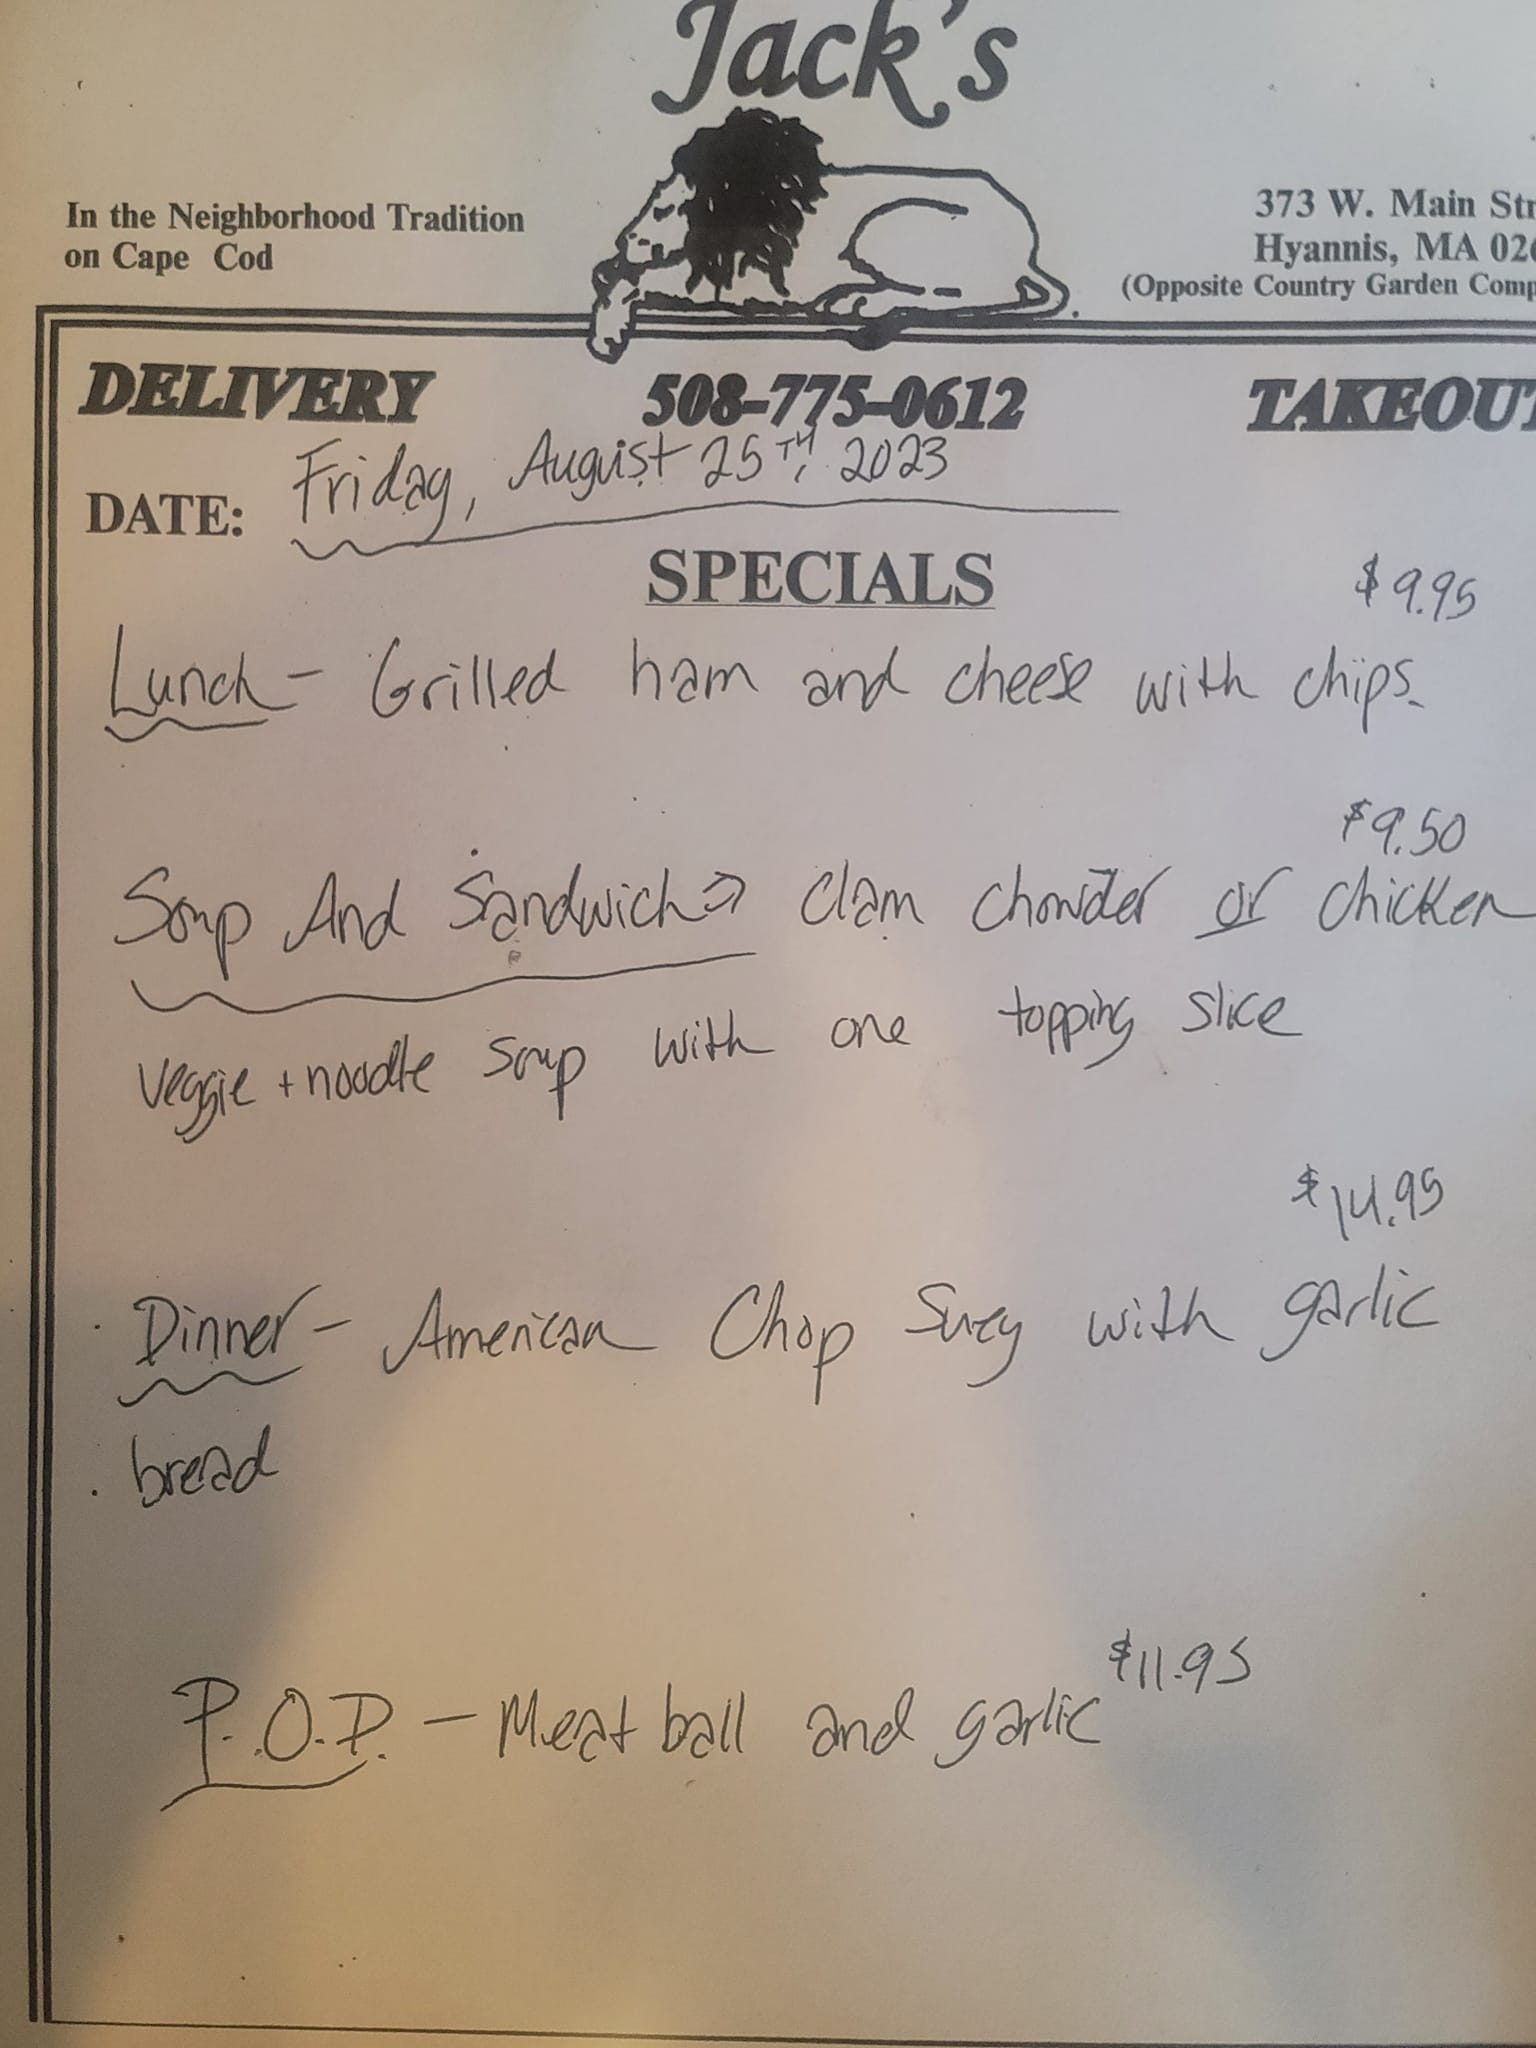 Jack's
In the Neighborhood Tradition
on Cape Cod
373 W. Main Str
Hyannis, MA 026
(Opposite Country Garden Comp
DELIVERY 508-775-0612 TAKEOUT
DATE: Friday, August 25TH, 2023
SPECIALS
$9.95
Lunch - Grilled ham and cheese with chips.
$9.50
Soup And Sandwich → Clam Chowder or Chicken
veggie + noodle soup with one topping slice
$14.95
Dinner - American Chop Suey with garlic
bread
$11.95
P.O.D. - Meatball and garlic